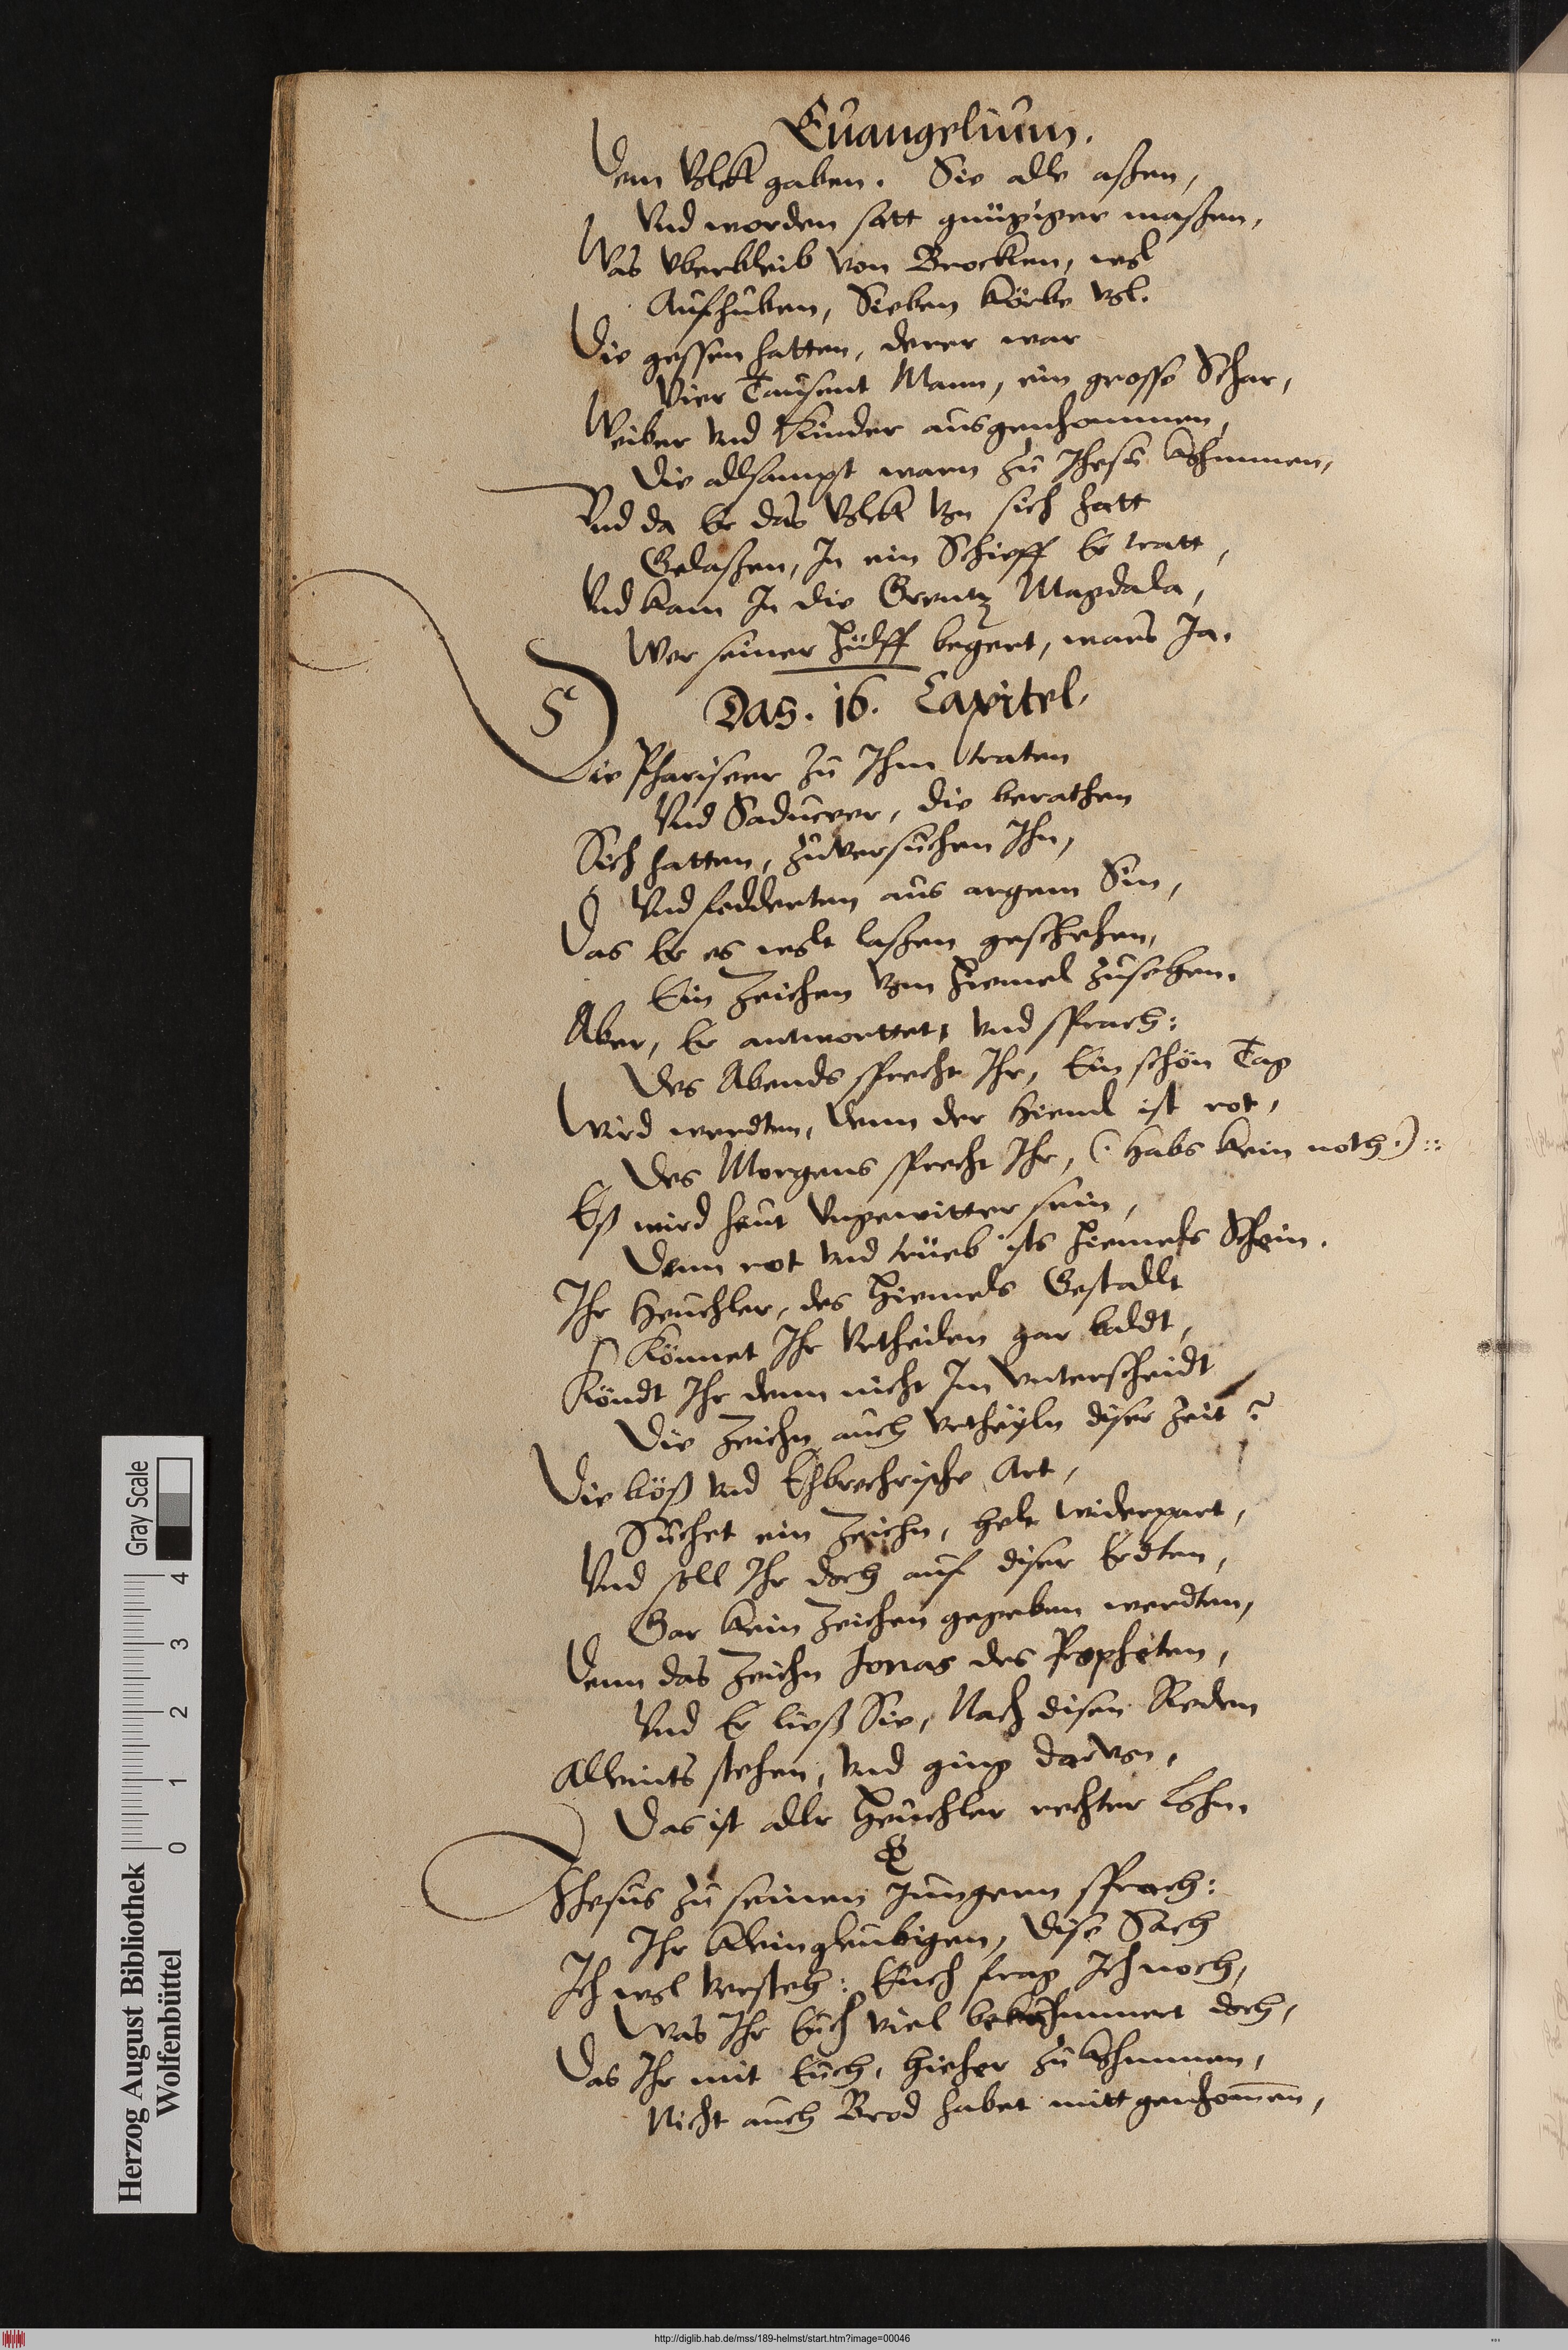 Euangelium.
Dem Volck gaben. Sie alle aßen,
Vnd worden satt gnügiger maßen,
Was vberbleib von Brocken, wol
Aufhuben, Sieben Körbe vol.
Die gessen hatten, derer war
Vier Tausent Mann, ein grosse Schar,
Weiber vnd Kinder ausgenhommen,
Die allsampt warn zu Jhesu khommen,
Vnd da Er das Volck von sich hatt
Gelaßen, In ein Schieff Er tratt,
Vnd kam In die Grentz Magdala,
Wer seiner hülff begert, wars Ja.
Das. 16. Capitel.
Die Phariseer zu Ihm traten
Vnd Saduceer, die berathen
Sich hatten, zuversuchen Ihn,
Vnd fodderten aus argem Sin,
Das Er es wolt laßen geschehen,
Ein Zeichen vom hiemel zusehen.
Aber, Er antworttet, vnd sprach:
Des Abends sprecht Ihr, Ein schön Tag
Wird werdten, denn der hieml ist rot,
Des Morgens sprecht Ihr, (: habs kein noth:)::
Eß wird heut Vngewitter sein,
Denn rot vnd trüeb ists hiemels Schein.
Ihr heuchler, des hiemels Gestallt
Könnet Ihr Vrtheilen gar baldt,
Köndt Ihr denn nicht Im vnterscheidt
Die Zeichn auch vrtheyln diser Zeit?
Die böß vnd Ehbrechrische Art,
Suchet ein Zeichn, helt widerpart,
Vnd soll Ihr doch auf diser Erdten,
Gar kein Zeichen gegeben werdten,
Denn das Zeichn Jonas des Propheten,
Vnd Er ließ Sie, Nach disen Reden
Alleints stehen, vnd ging darvon,
Das ist aller heuchler rechter Lohn.
Jhesus zu seinen Jungern sprach:
Ihr kleingleubigen, dise Sach
Ich wol versteh: Euch frag Ich noch,
Was Ihr Euch viel bekhummert doch,
Das Ihr mit Euch, hieher zu khommen,
Nicht auch Brod habet mitt genhommen,
Herzog August Bibliothek
Wolfenbüttel
0 1 2 3 4
Gray Scale
http://diglib.hab.de/mss/189-helmst/start.htm?image=00046